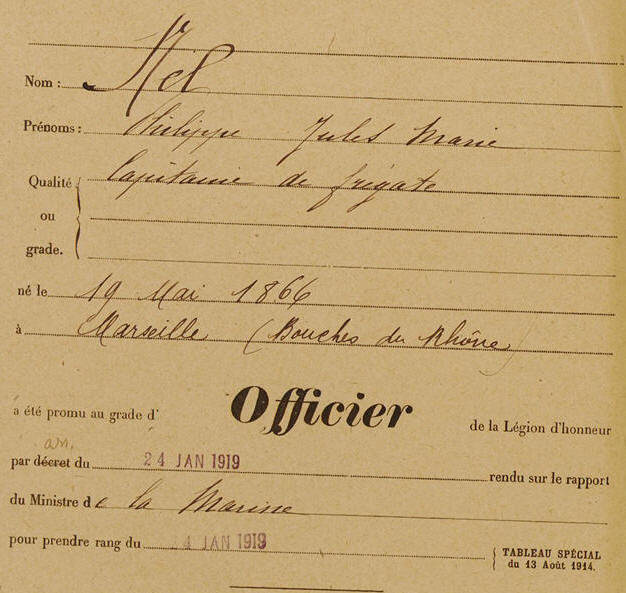 Nom : Nel
Prénoms : Philippe Jules Marie
Qualité Capitaine de frégate
ou
grade.
né le 19 Mai 1866
à Marseille (Bouches du Rhône)
a été promu au grade d' Officier de la Légion d'honneur
arr.
par décret du 24 JAN 1919 rendu sur le rapport
du Ministre de la Marine
pour prendre rang du 24 JAN 1919
TABLEAU SPÉCIAL
du 13 Août 1914.